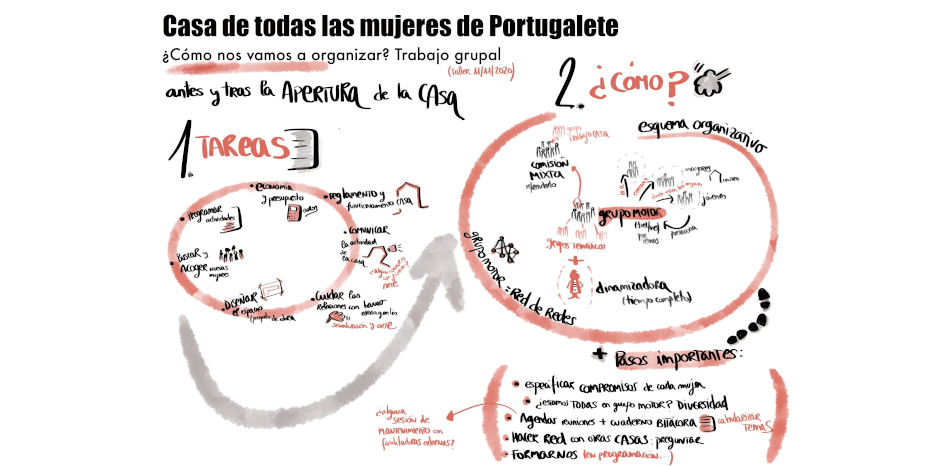 Casa de todas las mujeres de Portugalete
¿Cómo nos vamos a organizar? Trabajo grupal
(taller 11/11/2020)
antes y tras la APERTURA de la CASA
1. TAREAS
economía
y presupuesto
reglamento y
funcionamiento CASA
PROGRAMAR
actividades
COMUNICAR
la actividad
de
la casa
Buscar y
ACOGER nuevas
mujeres
DISEÑAR
el espacio
proyecto de obra
CUIDAR las
Relaciones con barrio
sensibilización y arte
2. ¿CÓMO?
esquema organizativo
grupo
trabajo CASA
COMISIÓN
MIXTA
liderado
GRUPO MOTOR
por
temas
jóvenes
grupos temáticos
+
dinamizadora
(tiempo completo)
GRUPO MOTOR = Red de Redes
+ Pasos importantes:
especificar COMPROMISOS de cada mujer
¿estamos TODAS en grupo motor? DIVERSIDAD
Agendar reuniones + cuaderno BITÁCORA
calendarizar
TEMAS
HACER RED con otras CASAS: preguntar
FORMARNOS (en programación...)
¿alguna
sesión de
MANTENIMIENTO con
facilitadoras externas?